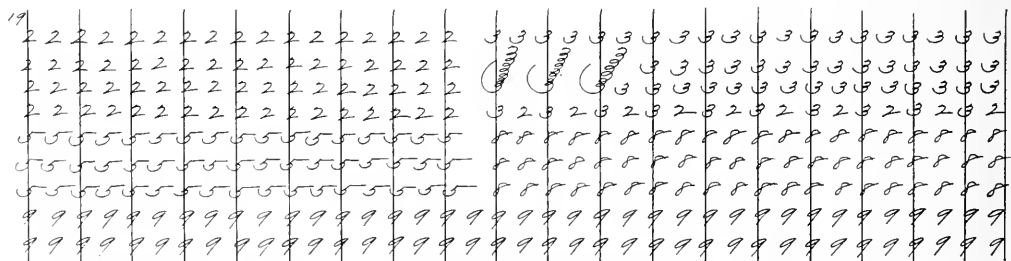 19
2 2 2 2 2 2 2 2 2 2 2 2 2 2 2 2 2 3 3 3 3 3 3 3 3 3 3 3 3 3 3 3 3 3 3 3 3
2 2 2 2 2 2 2 2 2 2 2 2 2 2 2 2 2 3 3 3 3 3 3 3 3 3 3 3 3 3 3
2 2 2 2 2 2 2 2 2 2 2 2 2 2 2 2 2 3 3 3 3 3 3 3 3 3 3 3 3 3 3 3
2 2 2 2 2 2 2 2 2 2 2 2 2 2 2 2 2 3 2 3 2 3 2 3 2 3 2 3 2 3 2 3 2 3 2 3 2
5 5 5 5 5 5 5 5 5 5 5 5 5 5 5 5 5 8 8 8 8 8 8 8 8 8 8 8 8 8 8 8 8 8 8 8 8
5 5 5 5 5 5 5 5 5 5 5 5 5 5 5 5 5 8 8 8 8 8 8 8 8 8 8 8 8 8 8 8 8 8 8 8 8
5 5 5 5 5 5 5 5 5 5 5 5 5 5 5 5 5 8 8 8 8 8 8 8 8 8 8 8 8 8 8 8 8 8 8 8 8
9 9 9 9 9 9 9 9 9 9 9 9 9 9 9 9 9 9 9 9 9 9 9 9 9 9 9 9 9 9 9 9 9 9 9 9 9 9
9 9 9 9 9 9 9 9 9 9 9 9 9 9 9 9 9 9 9 9 9 9 9 9 9 9 9 9 9 9 9 9 9 9 9 9 9 9